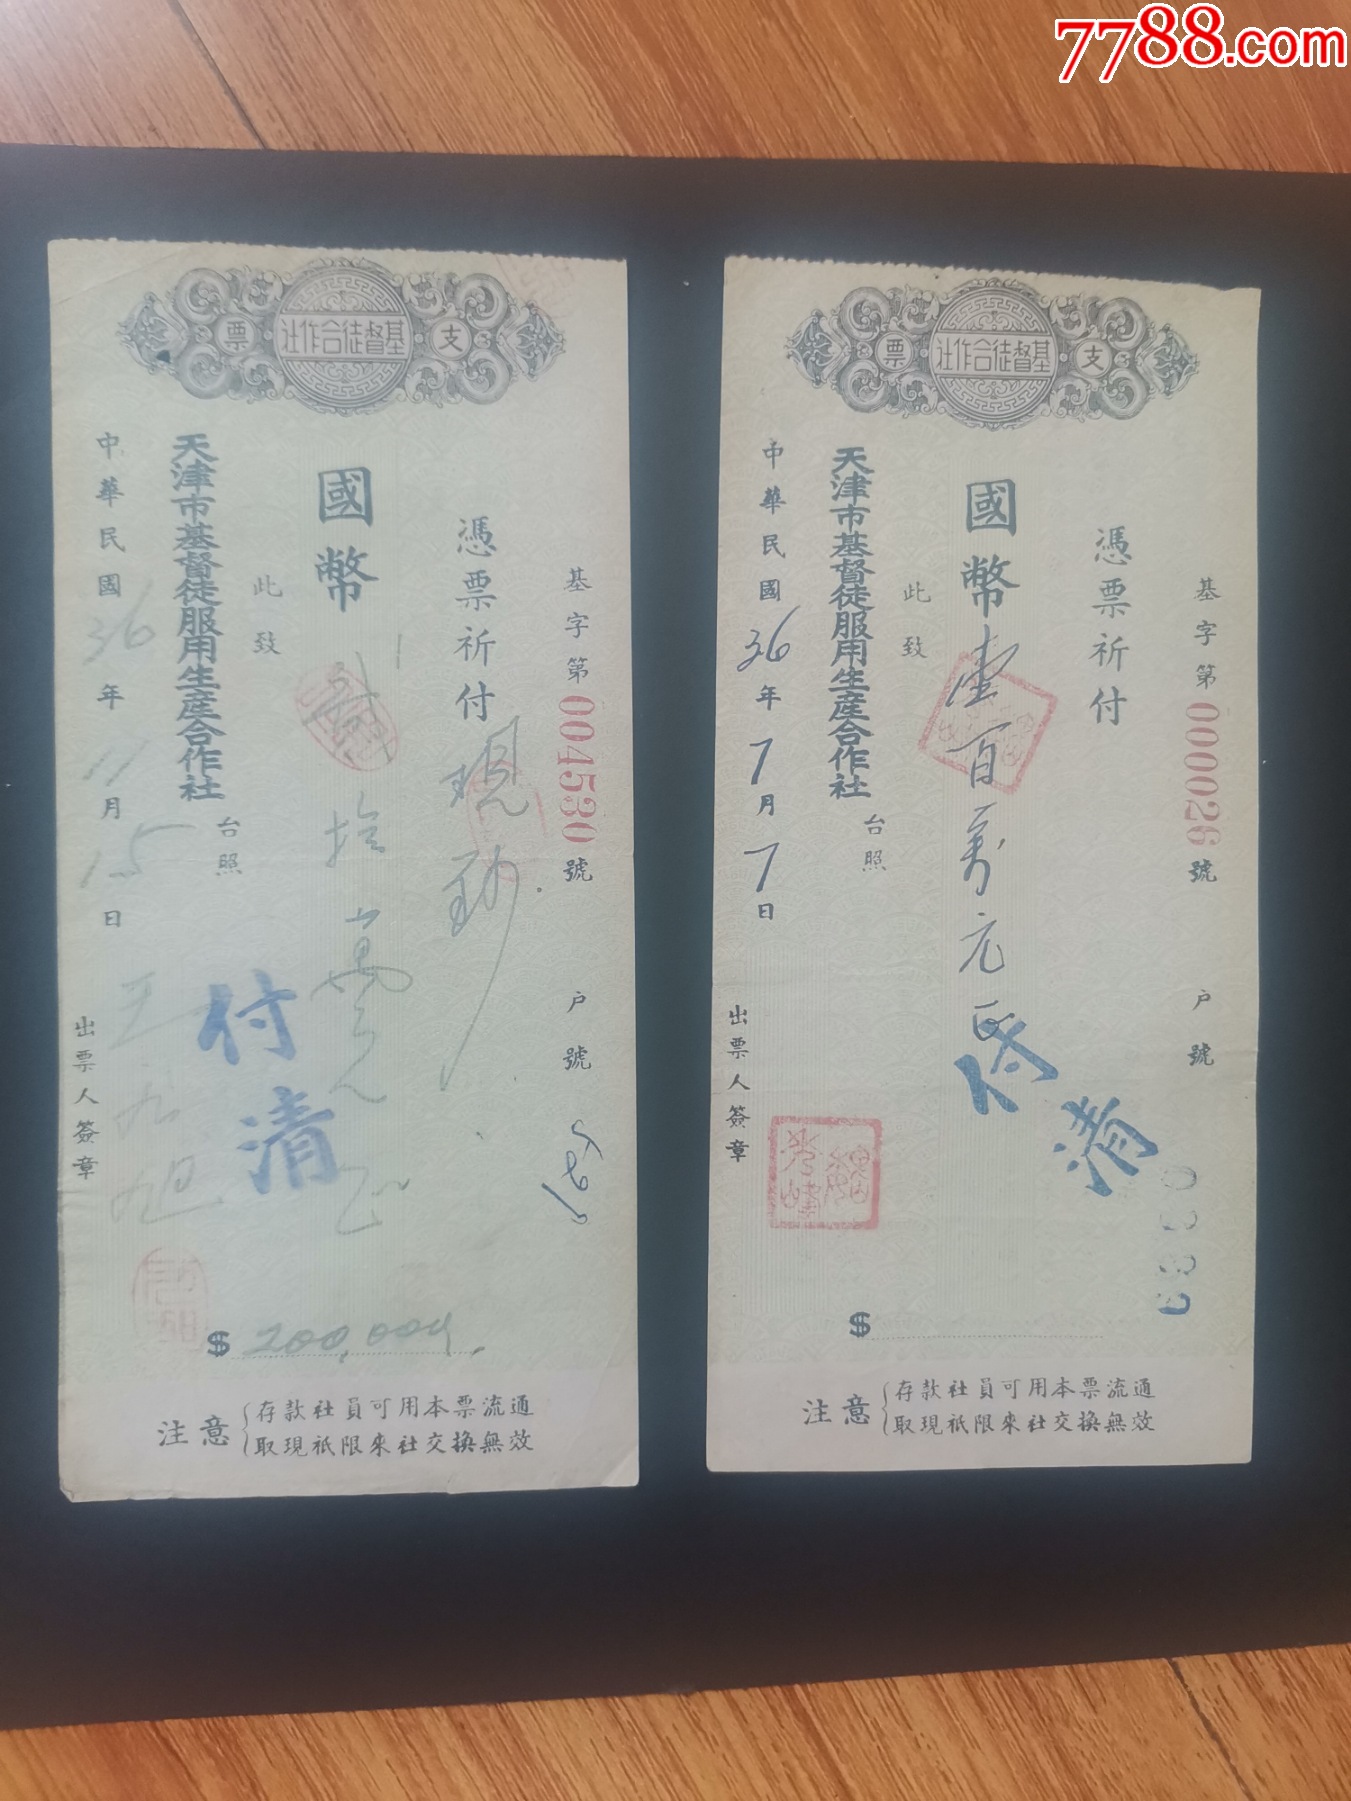 7788.com
支票
基督徒合作社
基字第004530號
戶號
憑票祈付現鈔
國幣貳拾萬元正
此致
天津市基督徒服用生產合作社
台照
中華民國36年11月15日
出票人簽章
王九旭
付清
$200,000
注意
存款社員可用本票流通
取現祇限來社交換無效
支票
基督徒合作社
基字第000026號
戶號
憑票祈付
國幣壹百萬元正
此致
天津市基督徒服用生產合作社
台照
中華民國36年7月7日
出票人簽章
付清
$
注意
存款社員可用本票流通
取現祇限來社交換無效